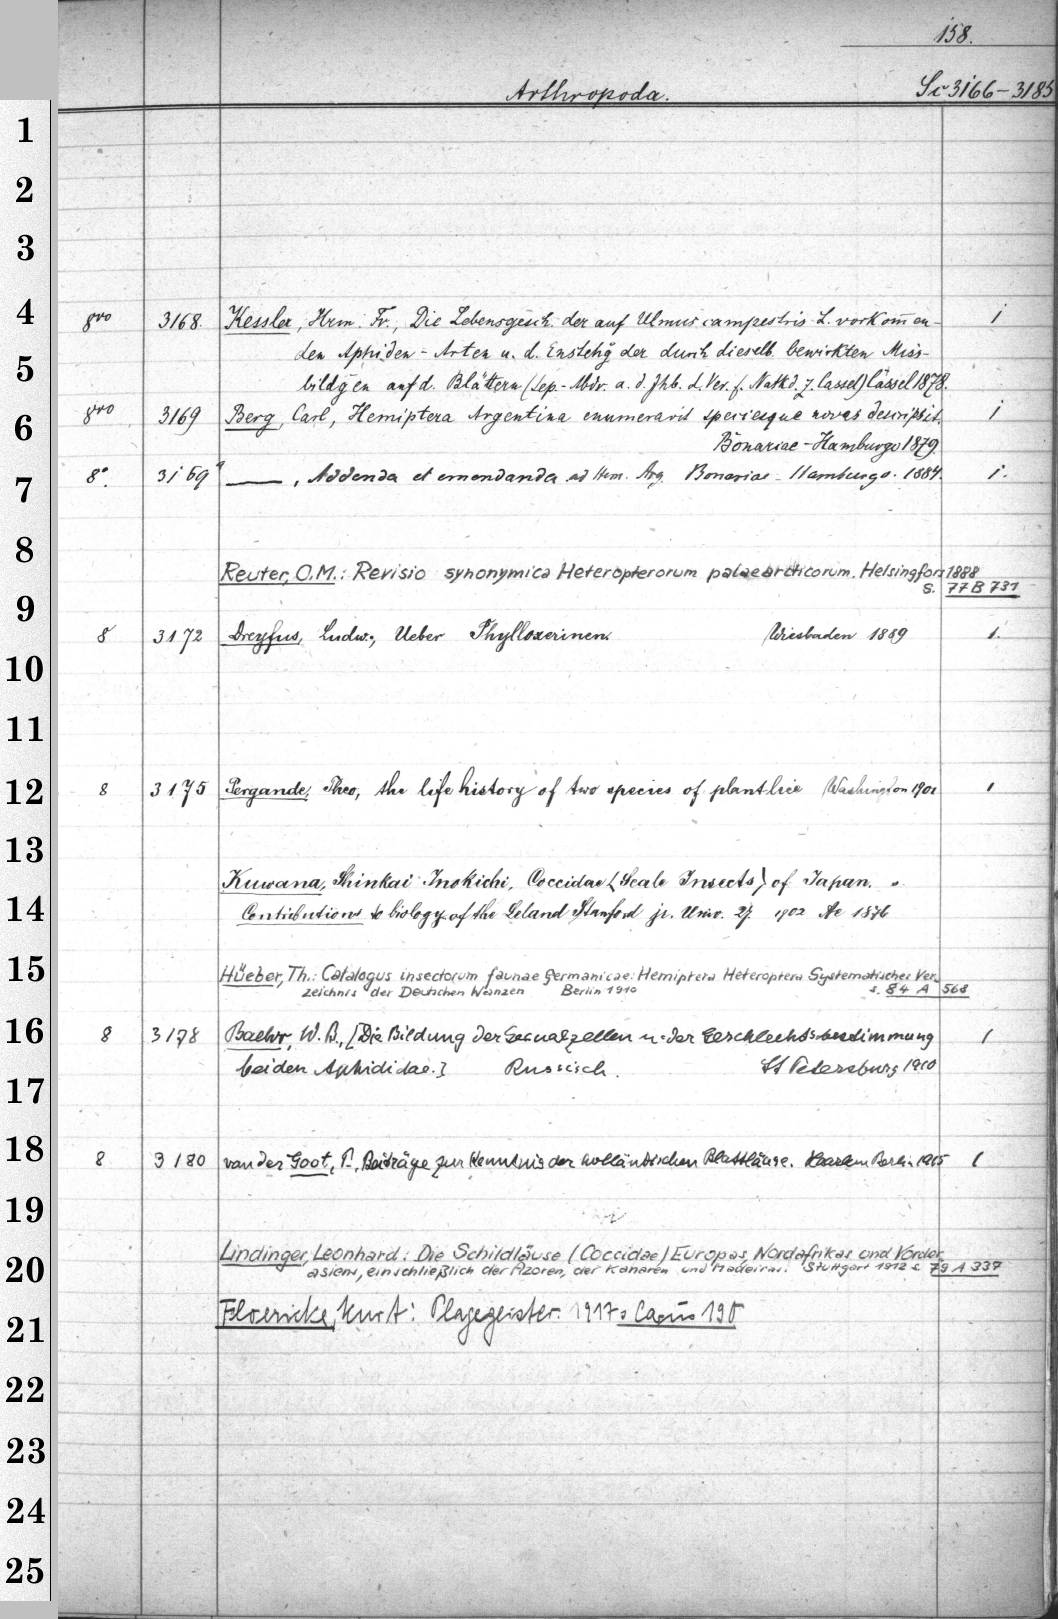 158.
Arthropoda. Sc 3166-3185
1
2
3
4 8vo 3168. Kessler, Hrm. Fr., Die Lebensgesch. der auf Ulmus campestris L. vorkom̄en-  1
den Aphiden-Arten u. d. Enstehg der durch dieselb. bewirkten Miss-
5 bildgen auf d. Blättern (Sep.-Abdr. a. d. Jhb. d. Ver. f. Natkd. z. Cassel) Cassel 1878.
6 8vo 3169 Berg, Carl, Hemiptera Argentina enumeravit speciesque novas descripsit. 1
Bonariae-Hamburgo 1879.
7 8°. 3169a ——, Addenda et emendanda ad Hem. Arg. Bonariae-Hamburgo. 1884. 1.
8
Reuter, O.M.: Revisio synonymica Heteropterorum palaearcticorum. Helsingfors 1888
9 s. 77 B 731
8 3172 Dreyfus, Ludw., Ueber Phylloxerinen. Wiesbaden 1889 1.
10
11
12 8 3175 Pergande, Theo, the life history of two species of plantlice Washington 1901 1
13
Kuwana, Shinkai Inokichi, Coccidae (Scale Insects) of Japan.
14 Contributions to biology of the Leland Stanford jr. Univ. 27. 1902 Ae 1876
15 Hüeber, Th.: Catalogus insectorum faunae germanicae: Hemiptera Heteroptera Systematisches Ver-
zeichnis der Deutschen Wanzen Berlin 1910 s. 84 A 568
16 8 3178 Baehr, W. B., [Die Bildung der Sexualzellen u. der Geschlechtsbestimmung 1
bei den Aphididae.] Russisch. St Petersburg 1910
17
18 8 3180 van der Goot, P., Beiträge zur Kenntnis der holländischen Blattläuse. Haarlem Berlin 1915 1
19
Lindinger, Leonhard: Die Schildläuse (Coccidae) Europas, Nordafrikas und Vorder-
20 asiens, einschließlich der Azoren, der Kanaren und Madeiras. Stuttgart 1912 s. 79 A 337
21 Floericke, Kurt: Plagegeister. 1917 s. 190
22
23
24
25